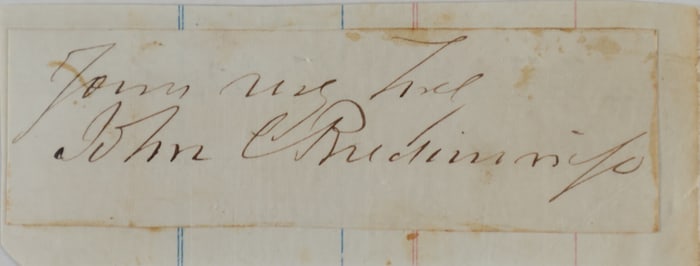 Yours very truly
John C Breckinridge